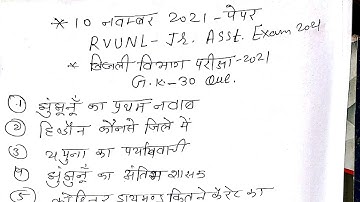 * 10 नवम्बर 2021 - पेपर
RVUNL - Jr. Asst. Exam 2021
* बिजली विभाग परीक्षा - 2021
G.K - 30 Que.
① झुंझुनूँ का प्रथम नवाब
② हिण्डौन कौनसे जिले में
③ यमुना का पर्यायवाची
④ झुंझुनूँ का अंतिम शासक
⑤ कोहिनूर डायमण्ड कितने कैरेट का